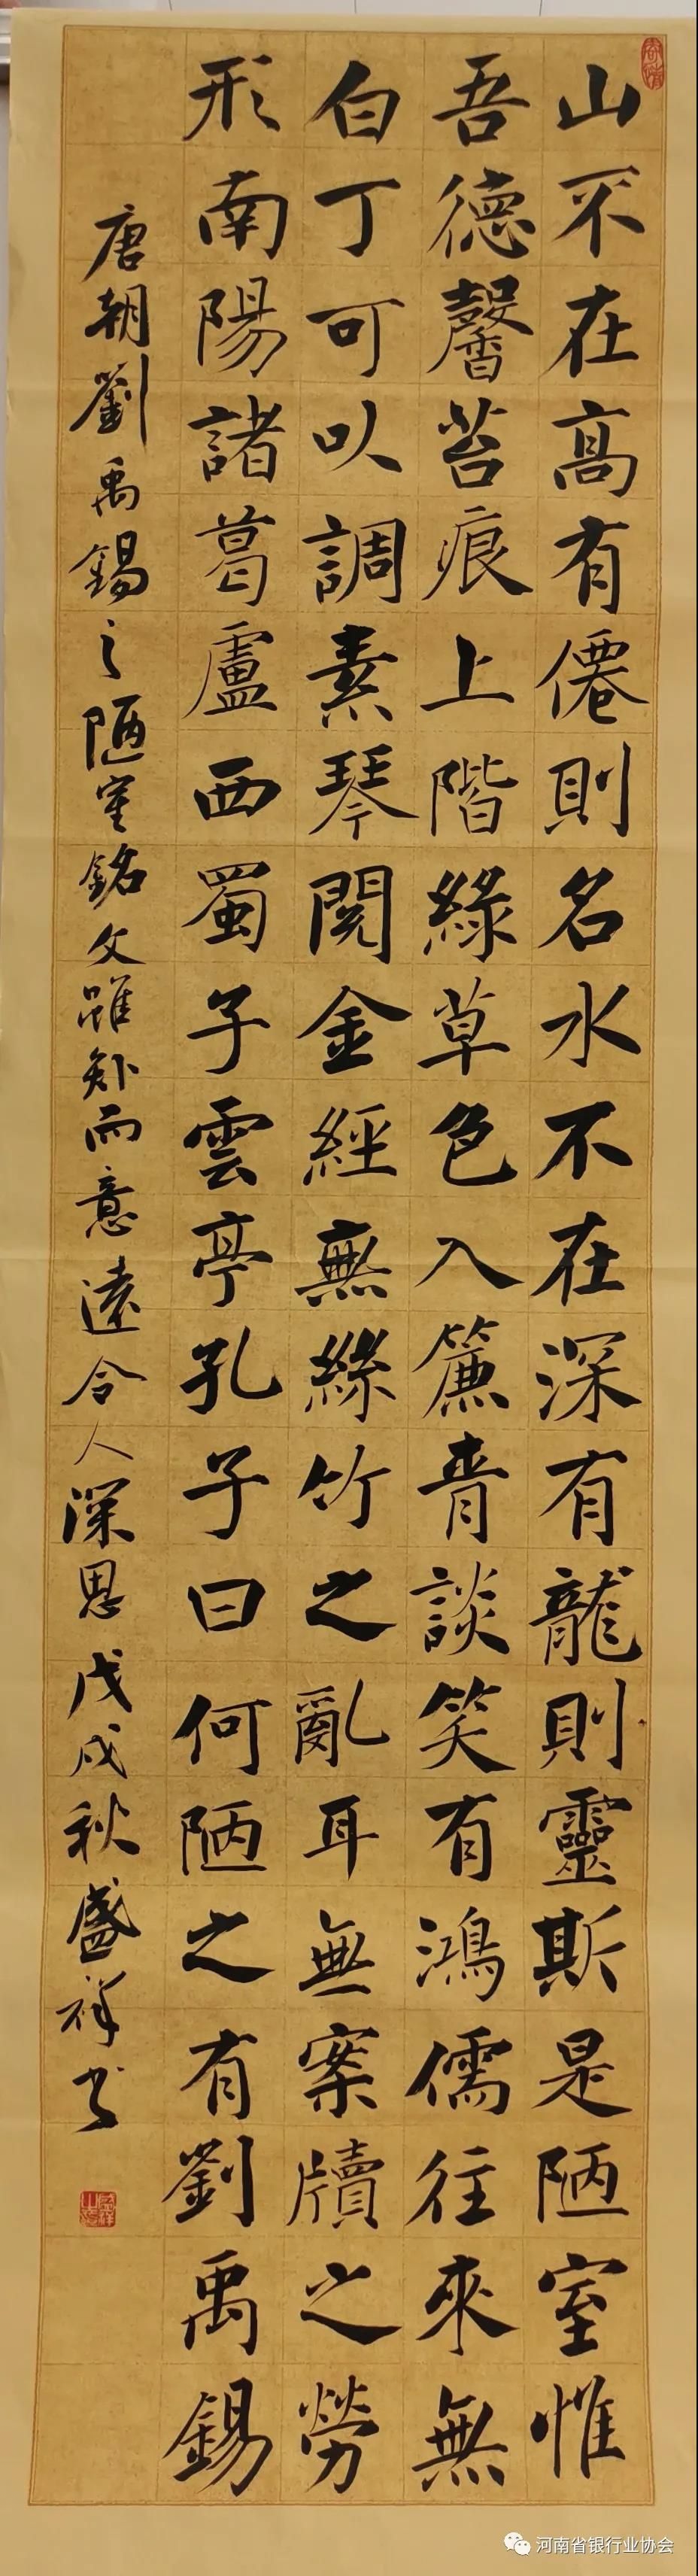 山不在高有僊則名水不在深有龍則靈斯是陋室惟
吾德馨苔痕上階綠草色入簾青談笑有鴻儒往來無
白丁可以調素琴閱金經無絲竹之亂耳無案牘之勞
形南陽諸葛盧西蜀子雲亭孔子曰何陋之有劉禹錫
唐朝劉禹錫之陋室銘文雖短而意遠令人深思戊戌秋盛祥书
河南省银行业协会